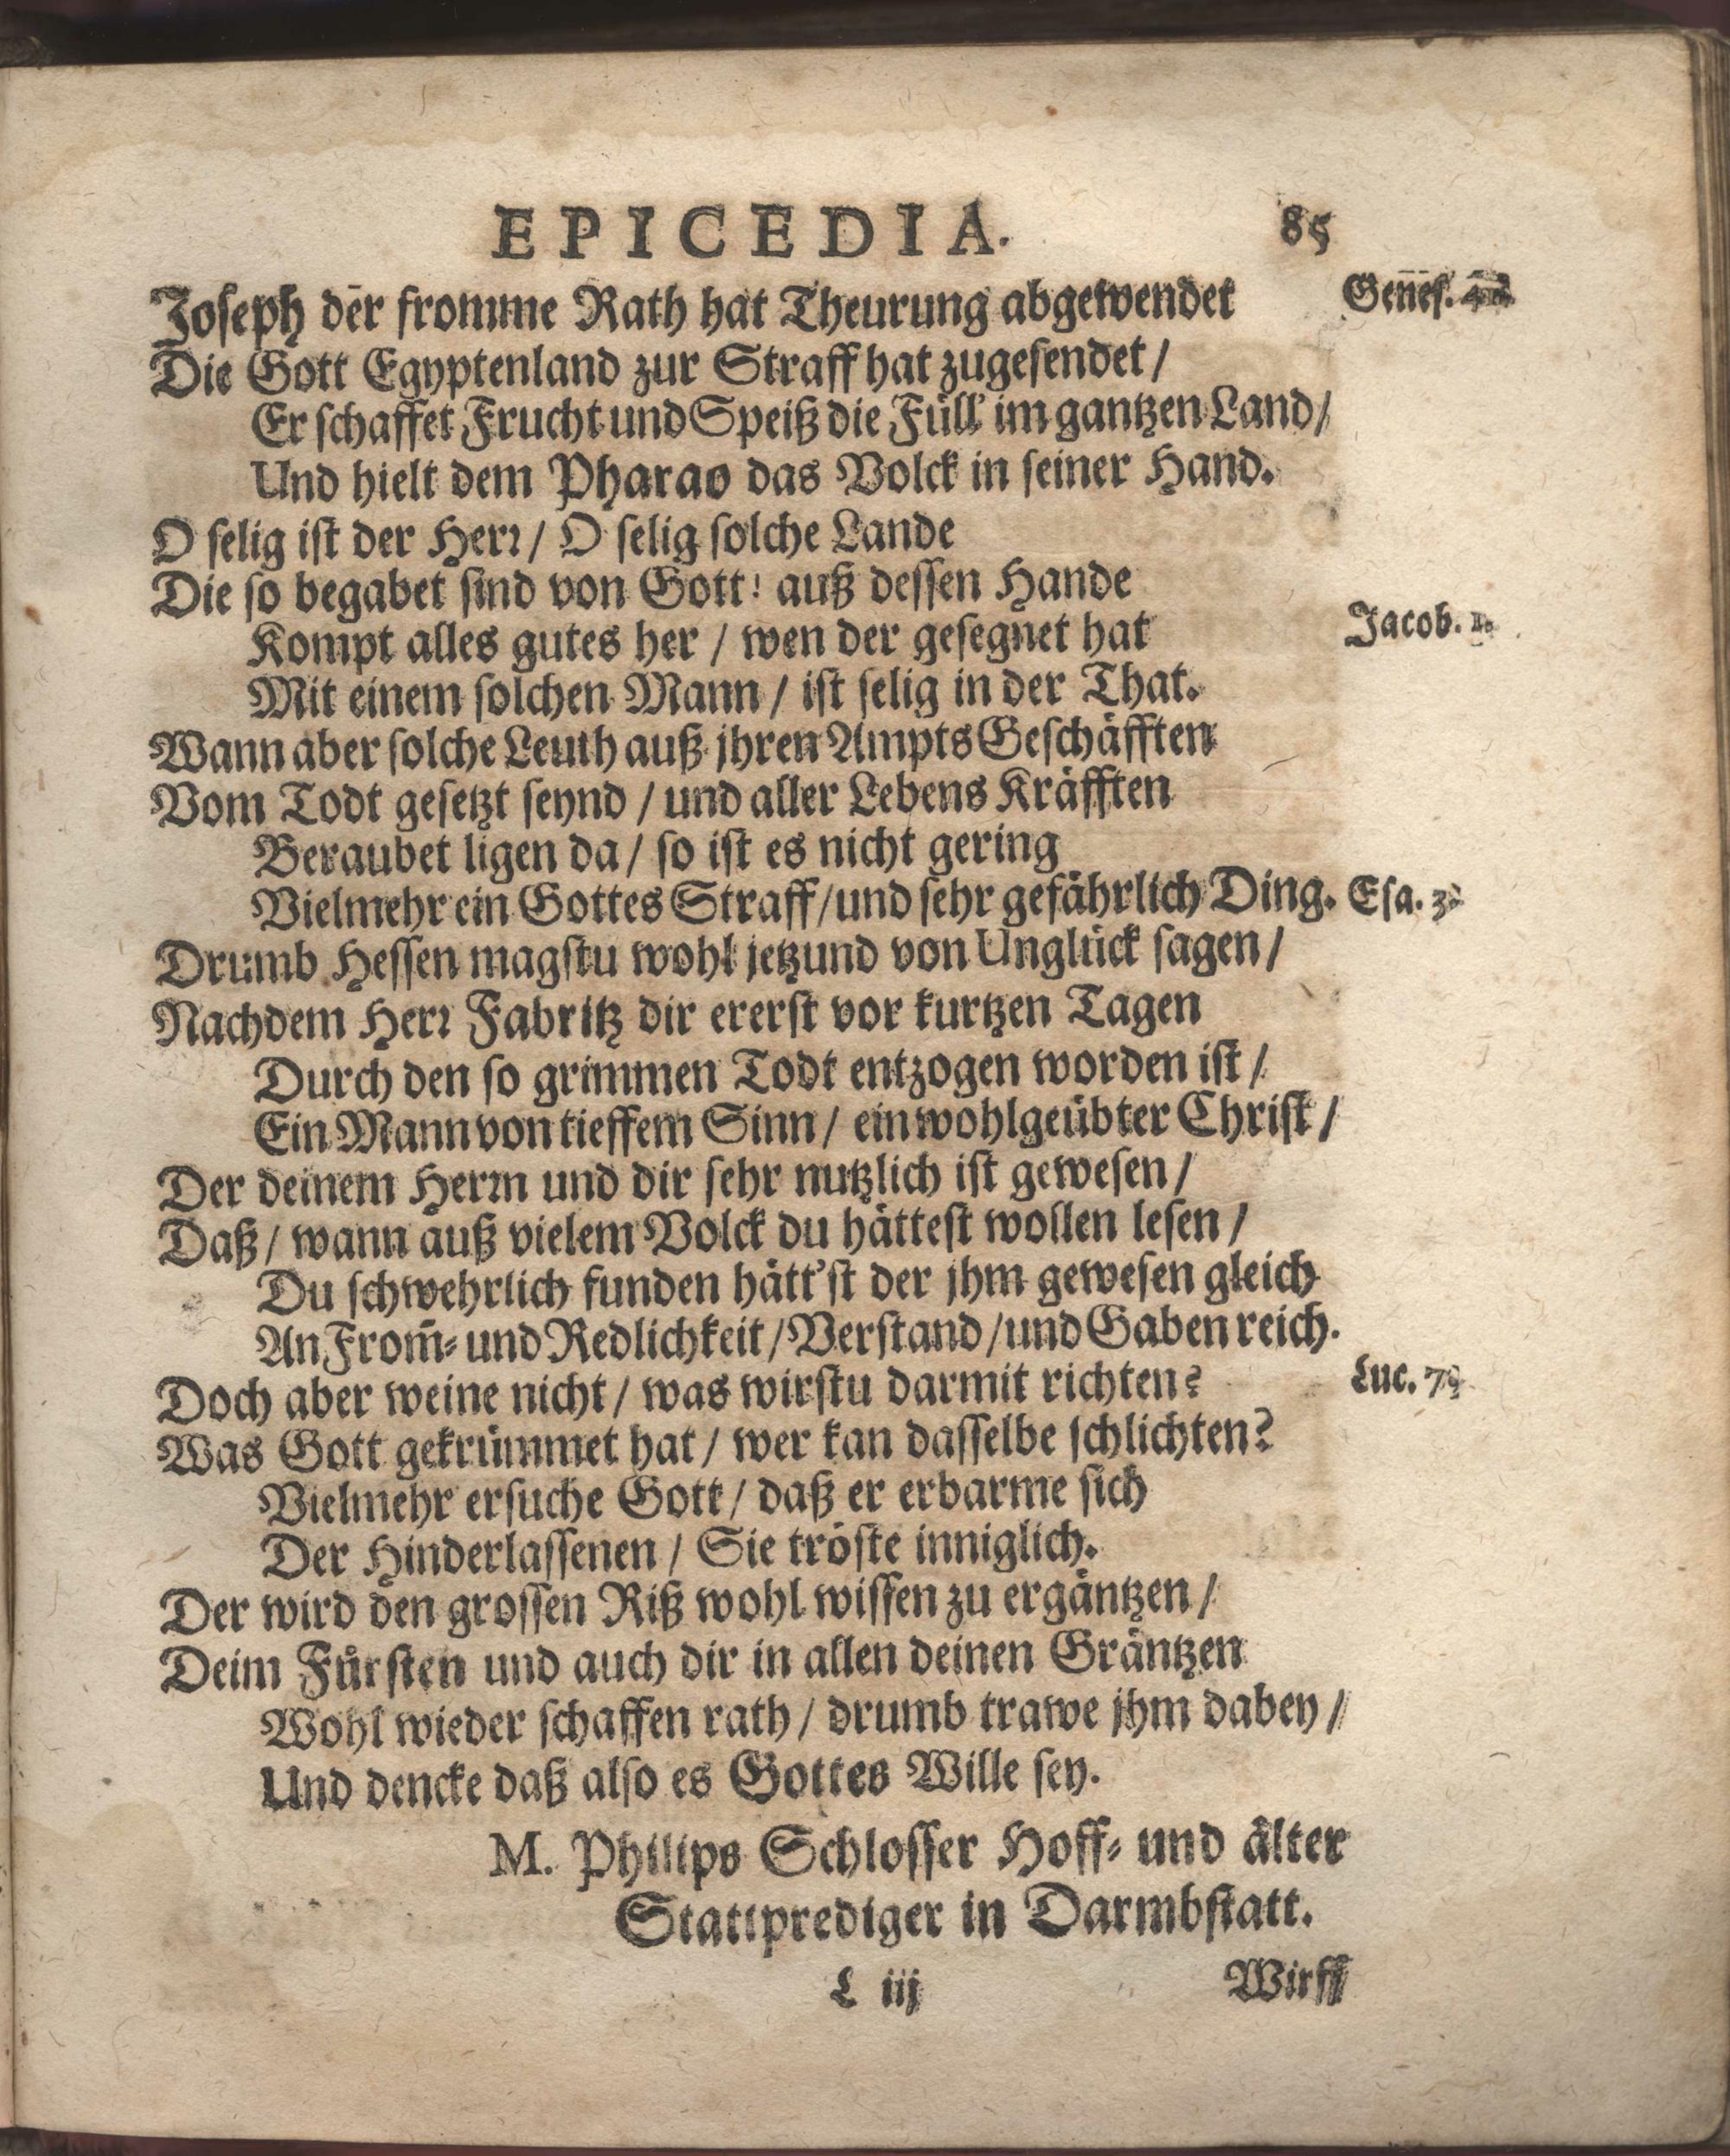 EPICEDIA. 85
Joseph der fromme Rath hat Theurung abgewendet
Genes.
Die Gott Egyptenland zur Straff hat zugesendet /
Er schaffet Frucht und Speiß die Füll' im gantzen Land /
Und hielt dem Pharao das Volck in seiner Hand.
O selig ist der Herr / O selig solche Lande
Die so begabet sind von Gott! auß dessen Hande
Kompt alles gutes her / wen der gesegnet hat
Jacob. 1.
Mit einem solchen Mann / ist selig in der That.
Wann aber solche Leuth auß jhren Ampts Geschäfften
Vom Todt gesetzt seynd / und aller Lebens Kräfften
Beraubet ligen da / so ist es nicht gering
Vielmehr ein Gottes Straff / und sehr gefährlich Ding.
Esa. 3.
Drumb Hessen magstu wohl jetzund von Unglück sagen /
Nachdem Herr Fabritz dir ererst vor kurtzen Tagen
Durch den so grimmen Todt entzogen worden ist /
Ein Mann von tieffem Sinn / ein wohlgeübter Christ /
Der deinem Herrn und dir sehr nutzlich ist gewesen /
Daß / wann auß vielem Volck du hättest wollen lesen /
Du schwehrlich funden hätt'st der jhm gewesen gleich
An From̃- und Redlichkeit / Verstand / und Gaben reich.
Doch aber weine nicht / was wirstu darmit richten?
Luc. 7.
Was Gott gekrümmet hat / wer kan dasselbe schlichten?
Vielmehr ersuche Gott / daß er erbarme sich
Der Hinderlassenen / Sie tröste inniglich.
Der wird den grossen Riß wohl wissen zu ergäntzen /
Deim Fürsten und auch dir in allen deinen Gräntzen
Wohl wieder schaffen rath / drumb trawe jhm dabey /
Und dencke daß also es Gottes Wille sey.
M. Philips Schlosser Hoff- und älter
Stattprediger in Darmbstatt.
L iij Wirff